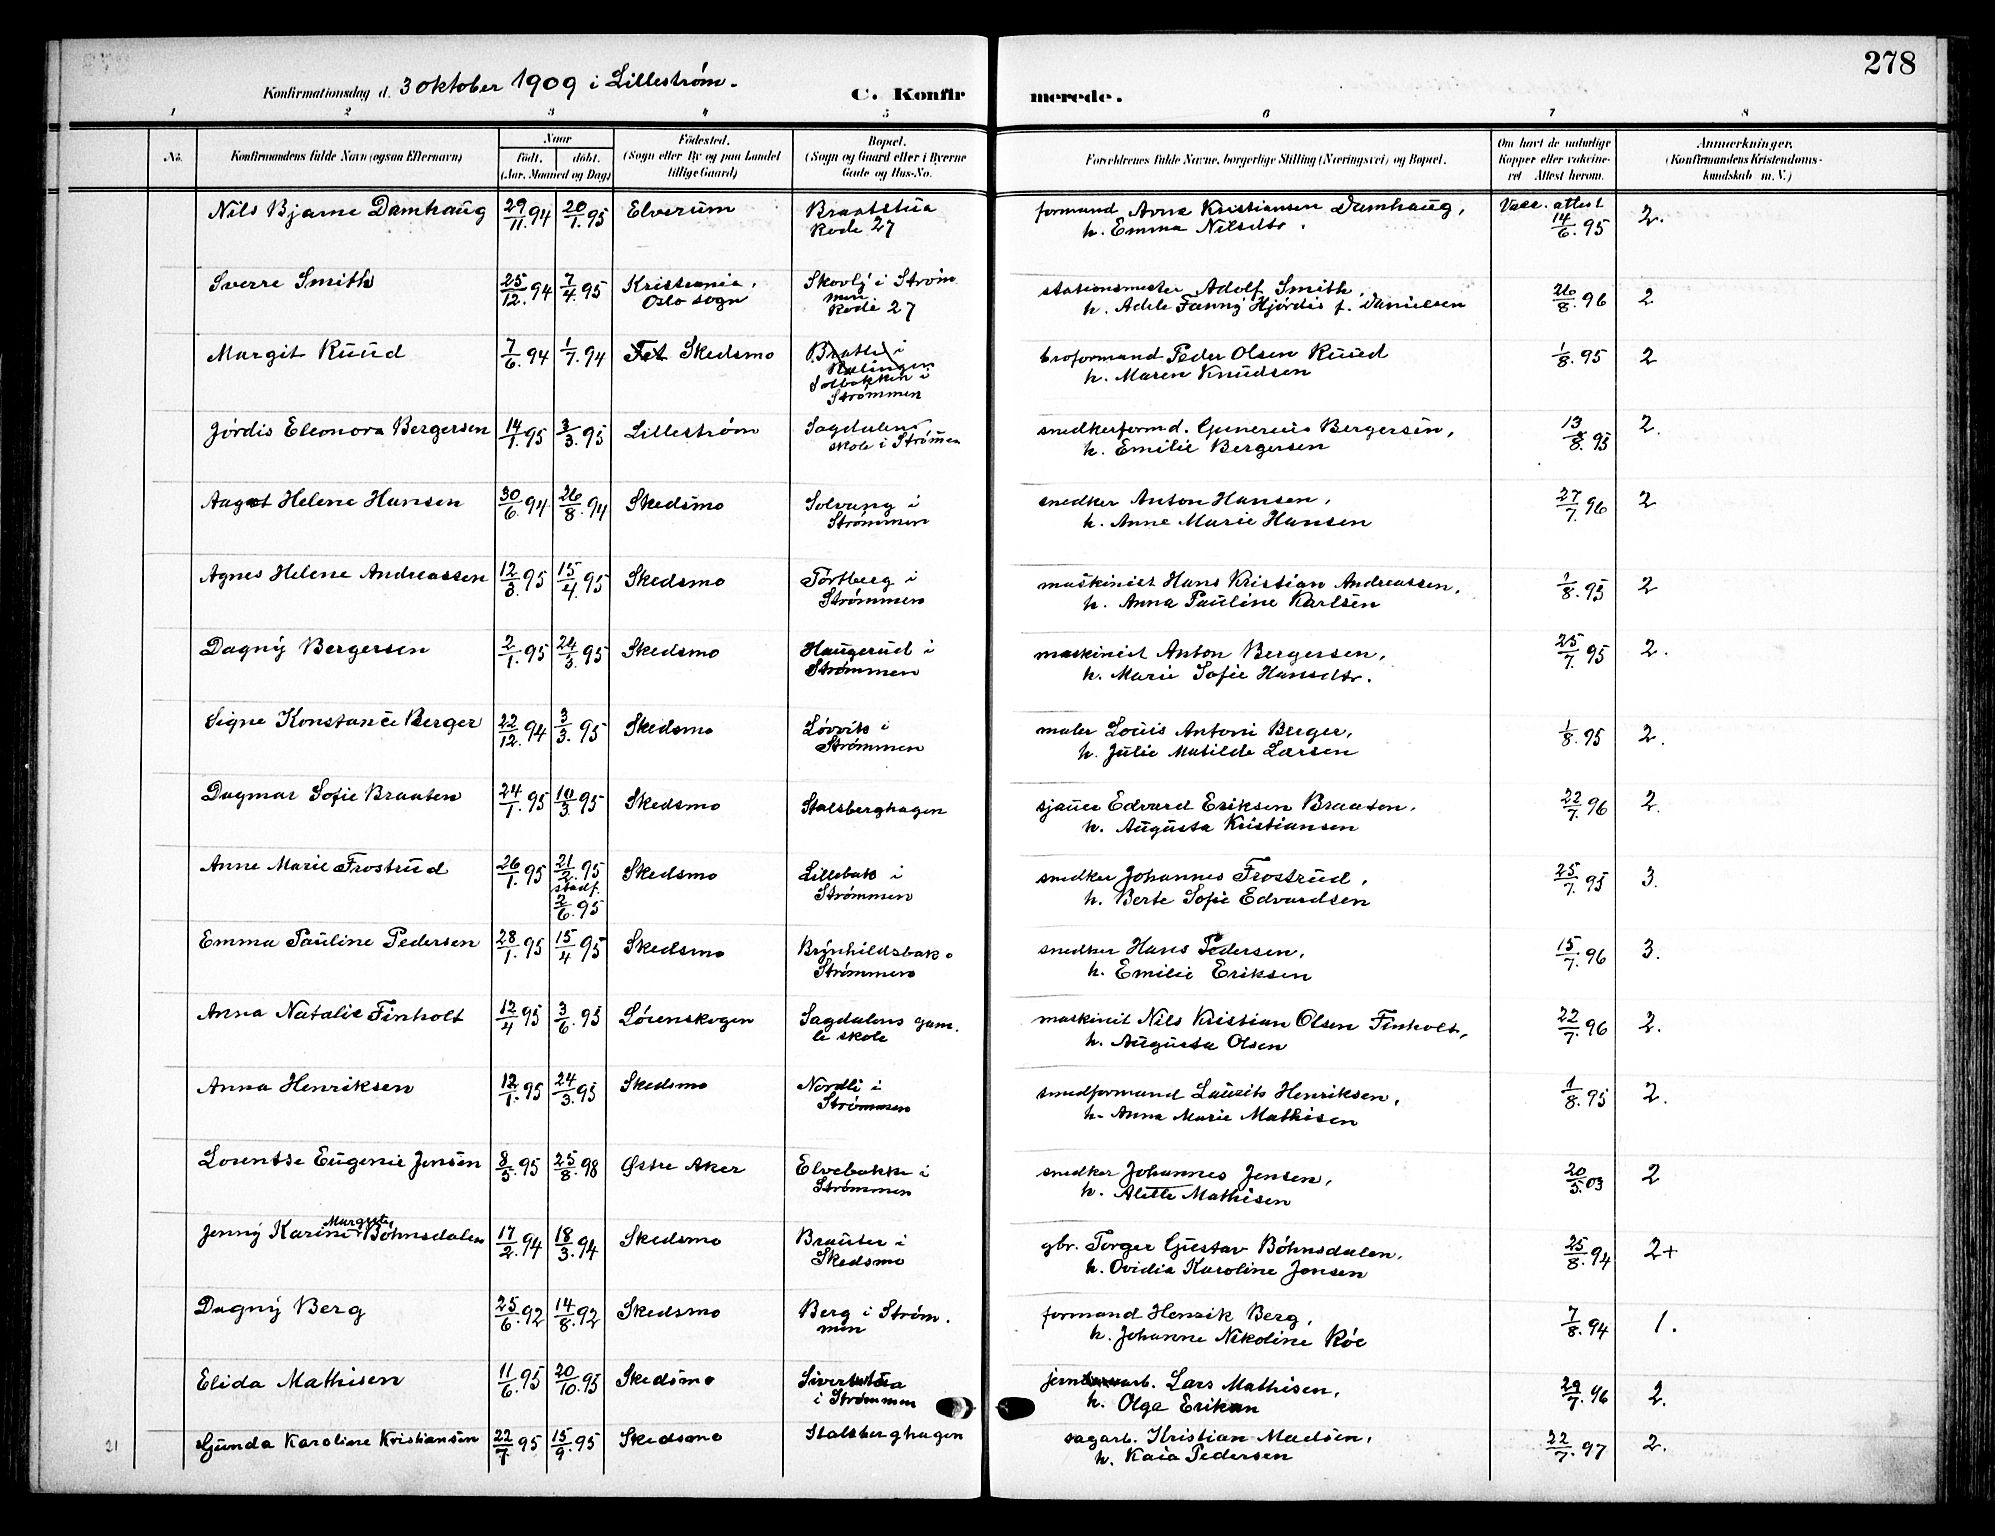 278
Konfirmationsdag d. 3 oktober 1909 i Lillestrøm.
C. Konfirmerede.
1 2 3 4 5 6 7 8
No.
Konfirmandens fulde Navn (ogsaa Efternavn)
Naar
født. døbt.
(Aar, Maaned og Dag)
Fødested.
(Sogn eller By og paa Landet
tillige Gaard)
Bopæl.
(Sogn og Gaard eller i Byerne
Gade og Hus-No.
Forældrenes fulde Navne, borgerlige Stilling (Næringsvei) og Bopæl.
Om havt de naturlige
Kopper eller vakcine-
ret Attest herom.
Anmærkninger.
(Konfirmandens Kristendoms-
kundskab m. V.)
Nils Bjarne Damhaug 29/11.94 20/1.95 Elverum Braatstua formand Arne Kristiansen Damhaug, Vacc. attest 14/6.95 2.
Rode 27 h. Emma Nilsdtr.
Sverre Smith 25/12.94 7/4.95 Kristiania, Skovly i Strøm stationsmester Adolf Smith 26/8.96 2
Oslo sogn men h. Adele Fanny Hjørdis f. Danielsen
Rode 27
Margit Ruud 7/6.94 1/7.94 Fet Skedsmo Braatte i broformand Peder Olsen Ruud 1/8.95 2
Rælingen h. Maren Knudsen
Solbakken i
Strømmen
Jørdis Eleonora Bergersen 14/1.95 3/3.95 Lillestrøm Sagdalens snedkerformd. Gunerius Bergersen, 13/8.95 2.
skole i Strømmen h. Emilie Bergersen
Aagot Helene Hansen 30/6.94 26/8.94 Skedsmo Solvang i snedker Anton Hansen, 27/7.96 2
Strømmen h. Anne Marie Hansen
Agnes Helene Andreassen 12/3.95 15/4.95 Skedsmo Tortberg i maskinist Hans Kristian Andreassen, 1/8.95 2
Strømmen h. Anna Pauline Karlsen
Dagny Bergersen 2/1.95 24/3.95 Skedsmo Haugerud i maskinist Anton Bergersen, 25/7.95 2.
Strømmen h. Marie Sofie Hansdtr.
Signe Konstance Berger 22/12.94 3/3.95 Skedsmo Løvvik i maler Louis Antoni Berger, 1/8.95 2.
Strømmen h. Julie Matilde Larsen
Dagmar Sofie Braaten 24/1.95 10/3.95 Skedsmo Stalsberghagen sjauer Edvard Eriksen Braaten, 22/7.96 2.
h. Augusta Kristiansen
Anne Marie Frostrud 26/1.95 21/2.95 Skedsmo Lillebak i snedker Johannes Frostrud, 25/7.95 3.
stadf. 2/6.95 Strømmen h. Berte Sofie Edvardsen
Emma Pauline Pedersen 28/1.95 15/4 95 Skedsmo Brynhildsbak. snedker Hans Pedersen, 15/7.96 3.
Strømmen h. Emilie Eriksen
Anna Natalie Finholt 12/4 95 3/6.95 Lørenskogen Sagdalens gam. maskinist Nils Kristian Olsen Finholt, 22/7.96 2.
le skole h. Augusta Olsen
Anna Henriksen 12/1.95 24/3.95 Skedsmo Nordli i smedformand Laurits Henriksen, 1/8.95 2.
Strømmen h. Anna Marie Mathisen
Lorentse Eugenie Jensen 8/5.95 25/8.98 Østre Aker Elvebakke i snedker Johannes Jensen, 20/5.03 2
Strømmen h. Alette Mathisen
Jenny Karine Margrete Bøhnsdalen 17/2.94 18/3.94 Skedsmo Brauter i gbr. Torger Gustav Bøhnsdalen, 25/8.94 2+
Skedsmo h. Ovidia Karoline Jensen
Dagny Berg 25/6.92 14/8.92 Skedsmo Berg i Strøm. formand Henrik Berg, 7/8.94 1.
men h. Johanne Nikoline Røe
Elida Mathisen 11/6.95 20/10.95 Skedsmo Siverstua jernarb. Lars Mathisen, 29/7.96 2.
i Strømmen h. Olga Eriksen
21 Gunda Karoline Kristiansen 22/7 95 15/9.95 Skedsmo Stalsberghagen sagarb. Kristian Madsen, 22/7.97 2.
h. Kaia Pedersen